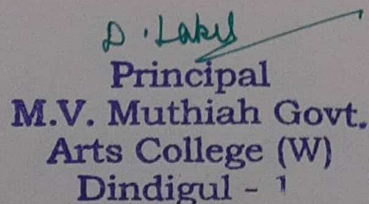 D. Laks
Principal
M.V. Muthiah Govt.
Arts College (W)
Dindigul - 1